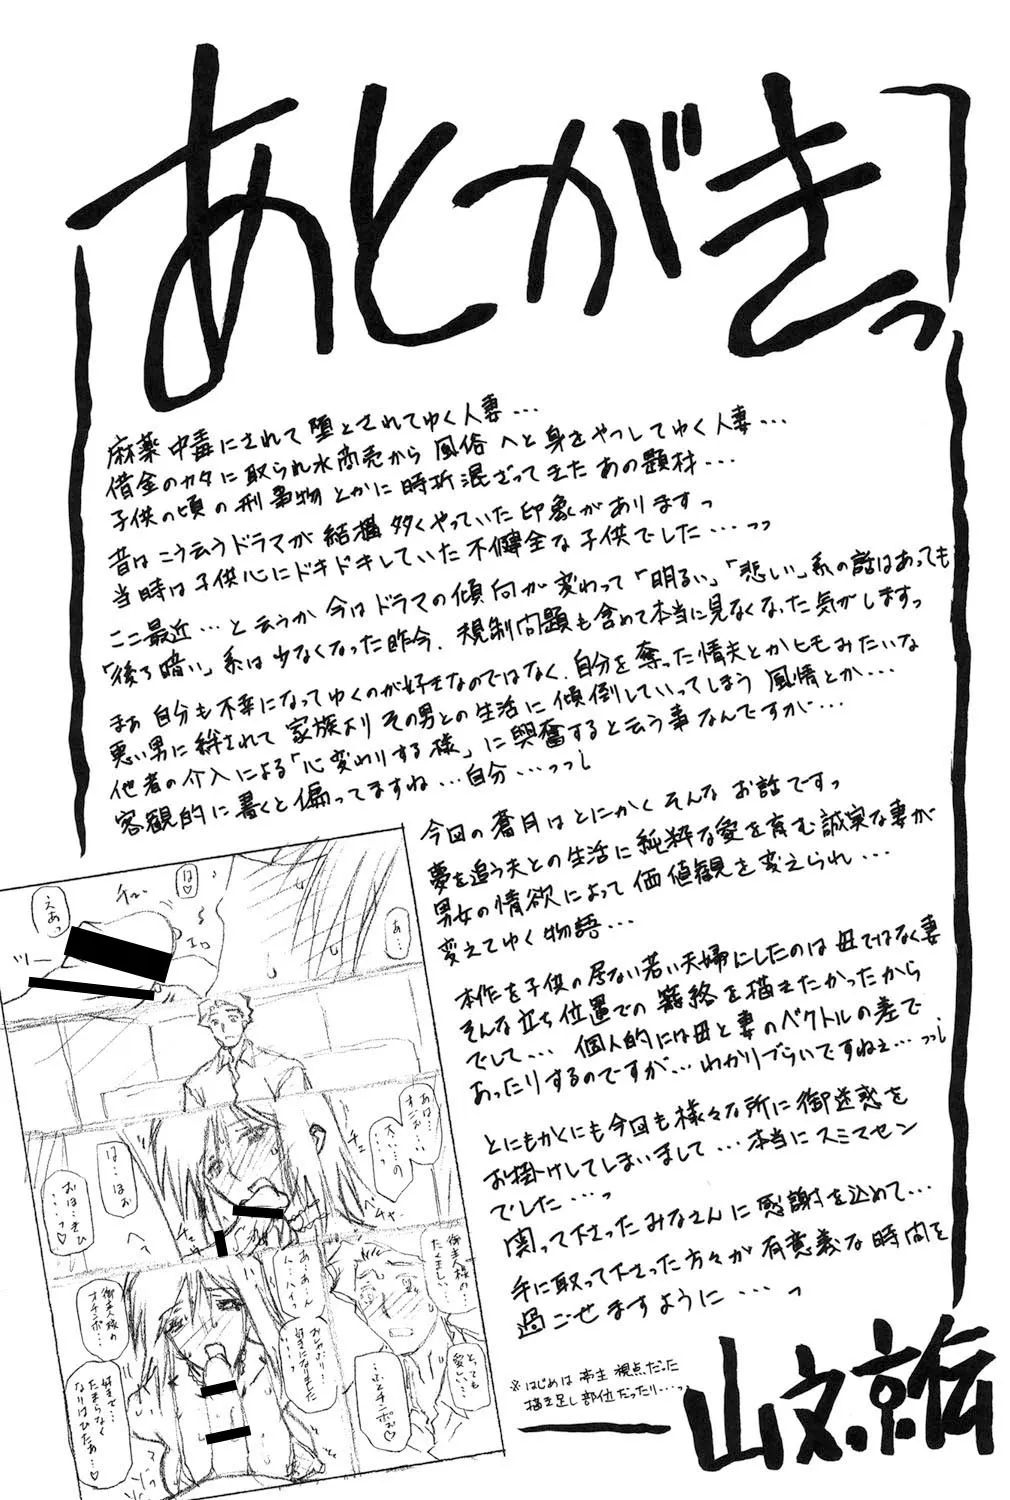 あとがきっ
麻薬中毒にされて堕とされてゆく人妻…
借金のカタに取られ水商売から風俗へと身をやつしてゆく人妻…
子供の頃の刑事物とかに時折混ざってきたあの題材…
昔はこう云うドラマが結構多くやっていた印象がありますっ
当時は子供心にドキドキしていた不健全な子供でした…っっ
ここ最近…と云うか今はドラマの傾向が変わって「明るい」「悲しい」系の話はあっても
「後ろ暗い」系は少なくなった昨今、規制問題も含めて本当に見なくなった気がしますっ
まぁ自分も不幸になってゆくのが好きなのではなく、自分を奪った情夫とかヒモみたいな
悪い男に絆されて家族よりその男との生活に傾倒していってしまう風情とか…
他者の介入による「心変わりする様」に興奮すると云う事なんですが…
客観的に書くと偏ってますね…自分…っっ
今回の蒼月はとにかくそんなお話ですっ
夢を追う夫との生活に純粋な愛を育む誠実な妻が
男女の情欲によって価値観を変えられ…
変えてゆく物語…
本作を子供の居ない若い夫婦にしたのは母ではなく妻
そんな立ち位置での籠絡を描きたかったから
でして… 個人的には母と妻のベクトルの差で
あったりするのですが…わかりづらいですねぇ…っっ
とにもかくにも今回も様々な所に御迷惑を
お掛けしてしまいまして…本当にスミマセン
でした…っ
関って下さったみなさんに感謝を込めて…
手に取って下さった方々が有意義な時間を
過ごせますように…っ
※はじめは亭主視点だった
描き足し部位だったり…っ
山文京伝
えあっ
ツー
チュ
は♡
あ…
御主人様の…
たましい…
とっても
愛しい…
おしゃぶり…
好きになりました
御主人様の
オチンポ…
好きで…
たまらなく
なりはひたぁ…♡